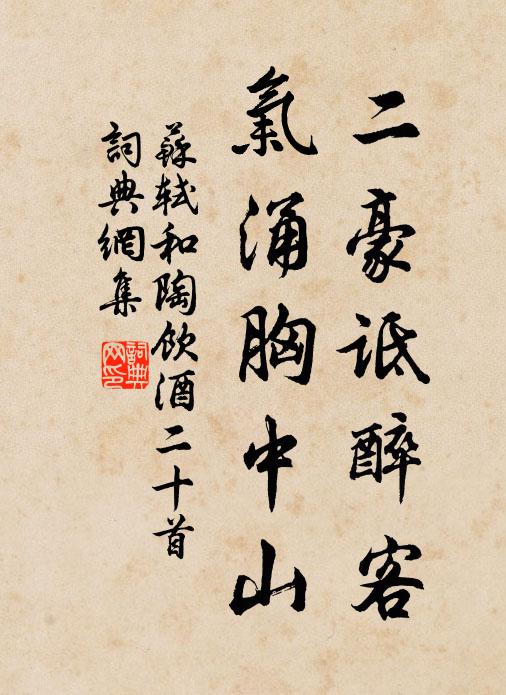 二豪詆醉客
氣涌胸中山
蘇軾和陶飲酒二十首
詞典網集
詞典网印